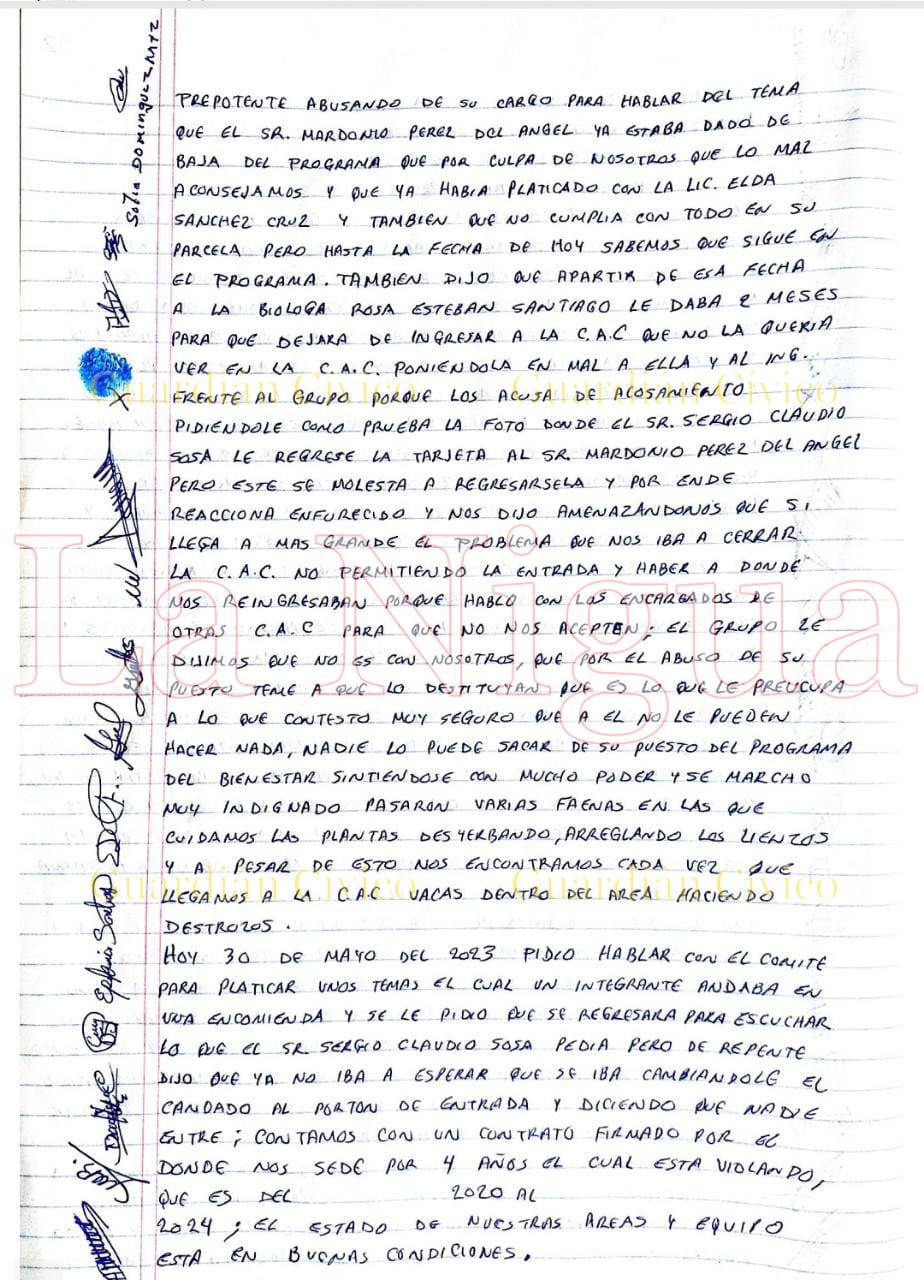 PREPOTENTE ABUSANDO DE SU CARGO PARA HABLAR DEL TEMA
QUE EL SR. MARDONIO PEREZ DEL ANGEL YA ESTABA DADO DE
BAJA DEL PROGRAMA QUE POR CULPA DE NOSOTROS QUE LO MAL
ACONSEJAMOS Y QUE YA HABIA PLATICADO CON LA LIC. ELDA
SANCHEZ CRUZ Y TAMBIEN QUE NO CUMPLIA CON TODO EN SU
PARCELA PERO HASTA LA FECHA DE HOY SABEMOS QUE SIGUE EN
EL PROGRAMA. TAMBIEN DIJO QUE APARTIR DE ESA FECHA
A LA BIOLOGA ROSA ESTEBAN SANTIAGO LE DABA 2 MESES
PARA QUE DEJARA DE INGRESAR A LA C.A.C QUE NO LA QUERIA
VER EN LA C.A.C. PONIENDOLA EN MAL A ELLA Y AL ING.
FRENTE AL GRUPO PORQUE LOS ACUSA DE ACOSAMIENTO
PIDIENDOLE COMO PRUEBA LA FOTO DONDE EL SR. SERGIO CLAUDIO
SOSA LE REGRESE LA TARJETA AL SR. MARDONIO PEREZ DEL ANGEL
PERO ESTE SE MOLESTA A REGRESARSELA Y POR ENDE
REACCIONA ENFURECIDO Y NOS DIJO AMENAZANDONOS QUE SI
LLEGA A MAS GRANDE EL PROBLEMA QUE NOS IBA A CERRAR
LA C.A.C. NO PERMITIENDO LA ENTRADA Y HABER A DONDE
NOS REINGRESABAN PORQUE HABLO CON LOS ENCARGADOS DE
OTRAS C.A.C PARA QUE NO NOS ACEPTEN; EL GRUPO LE
DIJIMOS QUE NO ES CON NOSOTROS, QUE POR EL ABUSO DE SU
PUESTO TEME A QUE LO DESTITUYAN QUE ES LO QUE LE PREUCUPA
A LO QUE CONTESTO MUY SEGURO QUE A EL NO LE PUEDEN
HACER NADA, NADIE LO PUEDE SACAR DE SU PUESTO DEL PROGRAMA
DEL BIENESTAR SINTIENDOSE CON MUCHO PODER Y SE MARCHO
MUY INDIGNADO PASARON VARIAS FAENAS EN LAS QUE
CUIDAMOS LAS PLANTAS DESYERBANDO, ARREGLANDO LOS LIENZOS
Y A PESAR DE ESTO NOS ENCONTRAMOS CADA VEZ QUE
LLEGAMOS A LA C.A.C VACAS DENTRO DEL AREA HACIENDO
DESTROZOS.
HOY 30 DE MAYO DEL 2023 PIDIO HABLAR CON EL COMITE
PARA PLATICAR UNOS TEMAS EL CUAL UN INTEGRANTE ANDABA EN
UNA ENCOMIENDA Y SE LE PIDIO QUE SE REGRESARA PARA ESCUCHAR
LO QUE EL SR. SERGIO CLAUDIO SOSA PEDIA PERO DE REPENTE
DIJO QUE YA NO IBA A ESPERAR QUE SE IBA CAMBIANDOLE EL
CANDADO AL PORTON DE ENTRADA Y DICIENDO QUE NADIE
ENTRE; CONTAMOS CON UN CONTRATO FIRMADO POR EL
DONDE NOS SEDE POR 4 AÑOS EL CUAL ESTA VIOLANDO,
QUE ES DEL 2020 AL
2024; EL ESTADO DE NUESTRAS AREAS Y EQUIPO
ESTA EN BUENAS CONDICIONES.
Sofia DOMINGUEZ MTZ
La Nigua
Guardian Civico
Guardian Civico
Guardian Civico
Guardian Civico